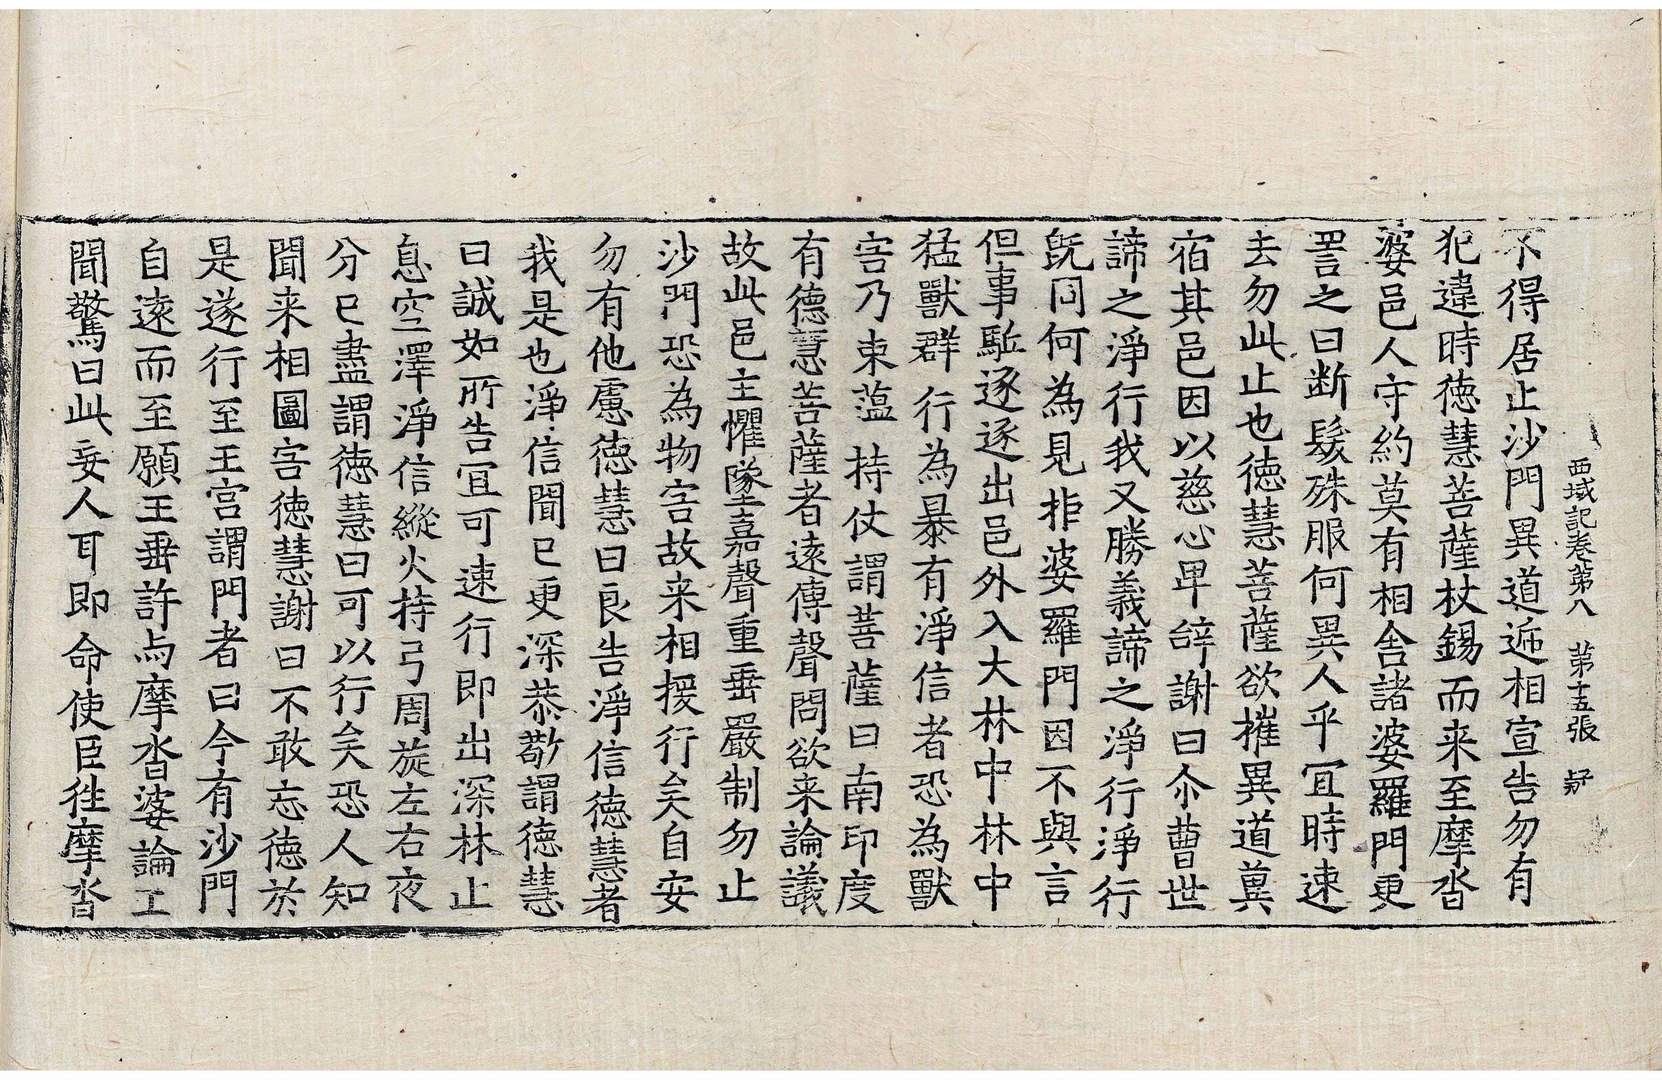 西域記卷第八　第十五張
不得居止沙門異道逓相宣告勿有
犯違時徳慧菩薩杖錫而来至摩沓
婆邑人守約莫有相舍諸婆羅門更
詈之曰断髮殊服何異人乎冝時速
去勿此止也徳慧菩薩欲摧異道兾
宿其邑因以慈心卑辝謝曰尒曹世
諦之淨行我又勝義諦之淨行淨行
旣同何為見拒婆羅門因不與言
但事駈逐逐出邑外入大林中林中
猛獸群行為暴有淨信者恐為獸
害乃束藴持仗謂菩薩曰南印度
有德慧菩薩者遠傳聲問欲来論議
故此邑主懼墜嘉聲重垂嚴制勿止
沙門恐為物害故来相援行矣自安
勿有他慮徳慧曰良告淨信徳慧者
我是也淨信聞已更深恭敬謂徳慧
曰誠如所告冝可速行即出深林止
息空澤淨信縱火持弓周旋左右夜
分已盡謂徳慧曰可以行矣恐人知
聞来相圖害徳慧謝曰不敢忘徳於
是遂行至王宫謂門者曰今有沙門
自遠而至願王垂許与摩沓婆論王
聞驚曰此妄人耳即命使臣徃摩沓